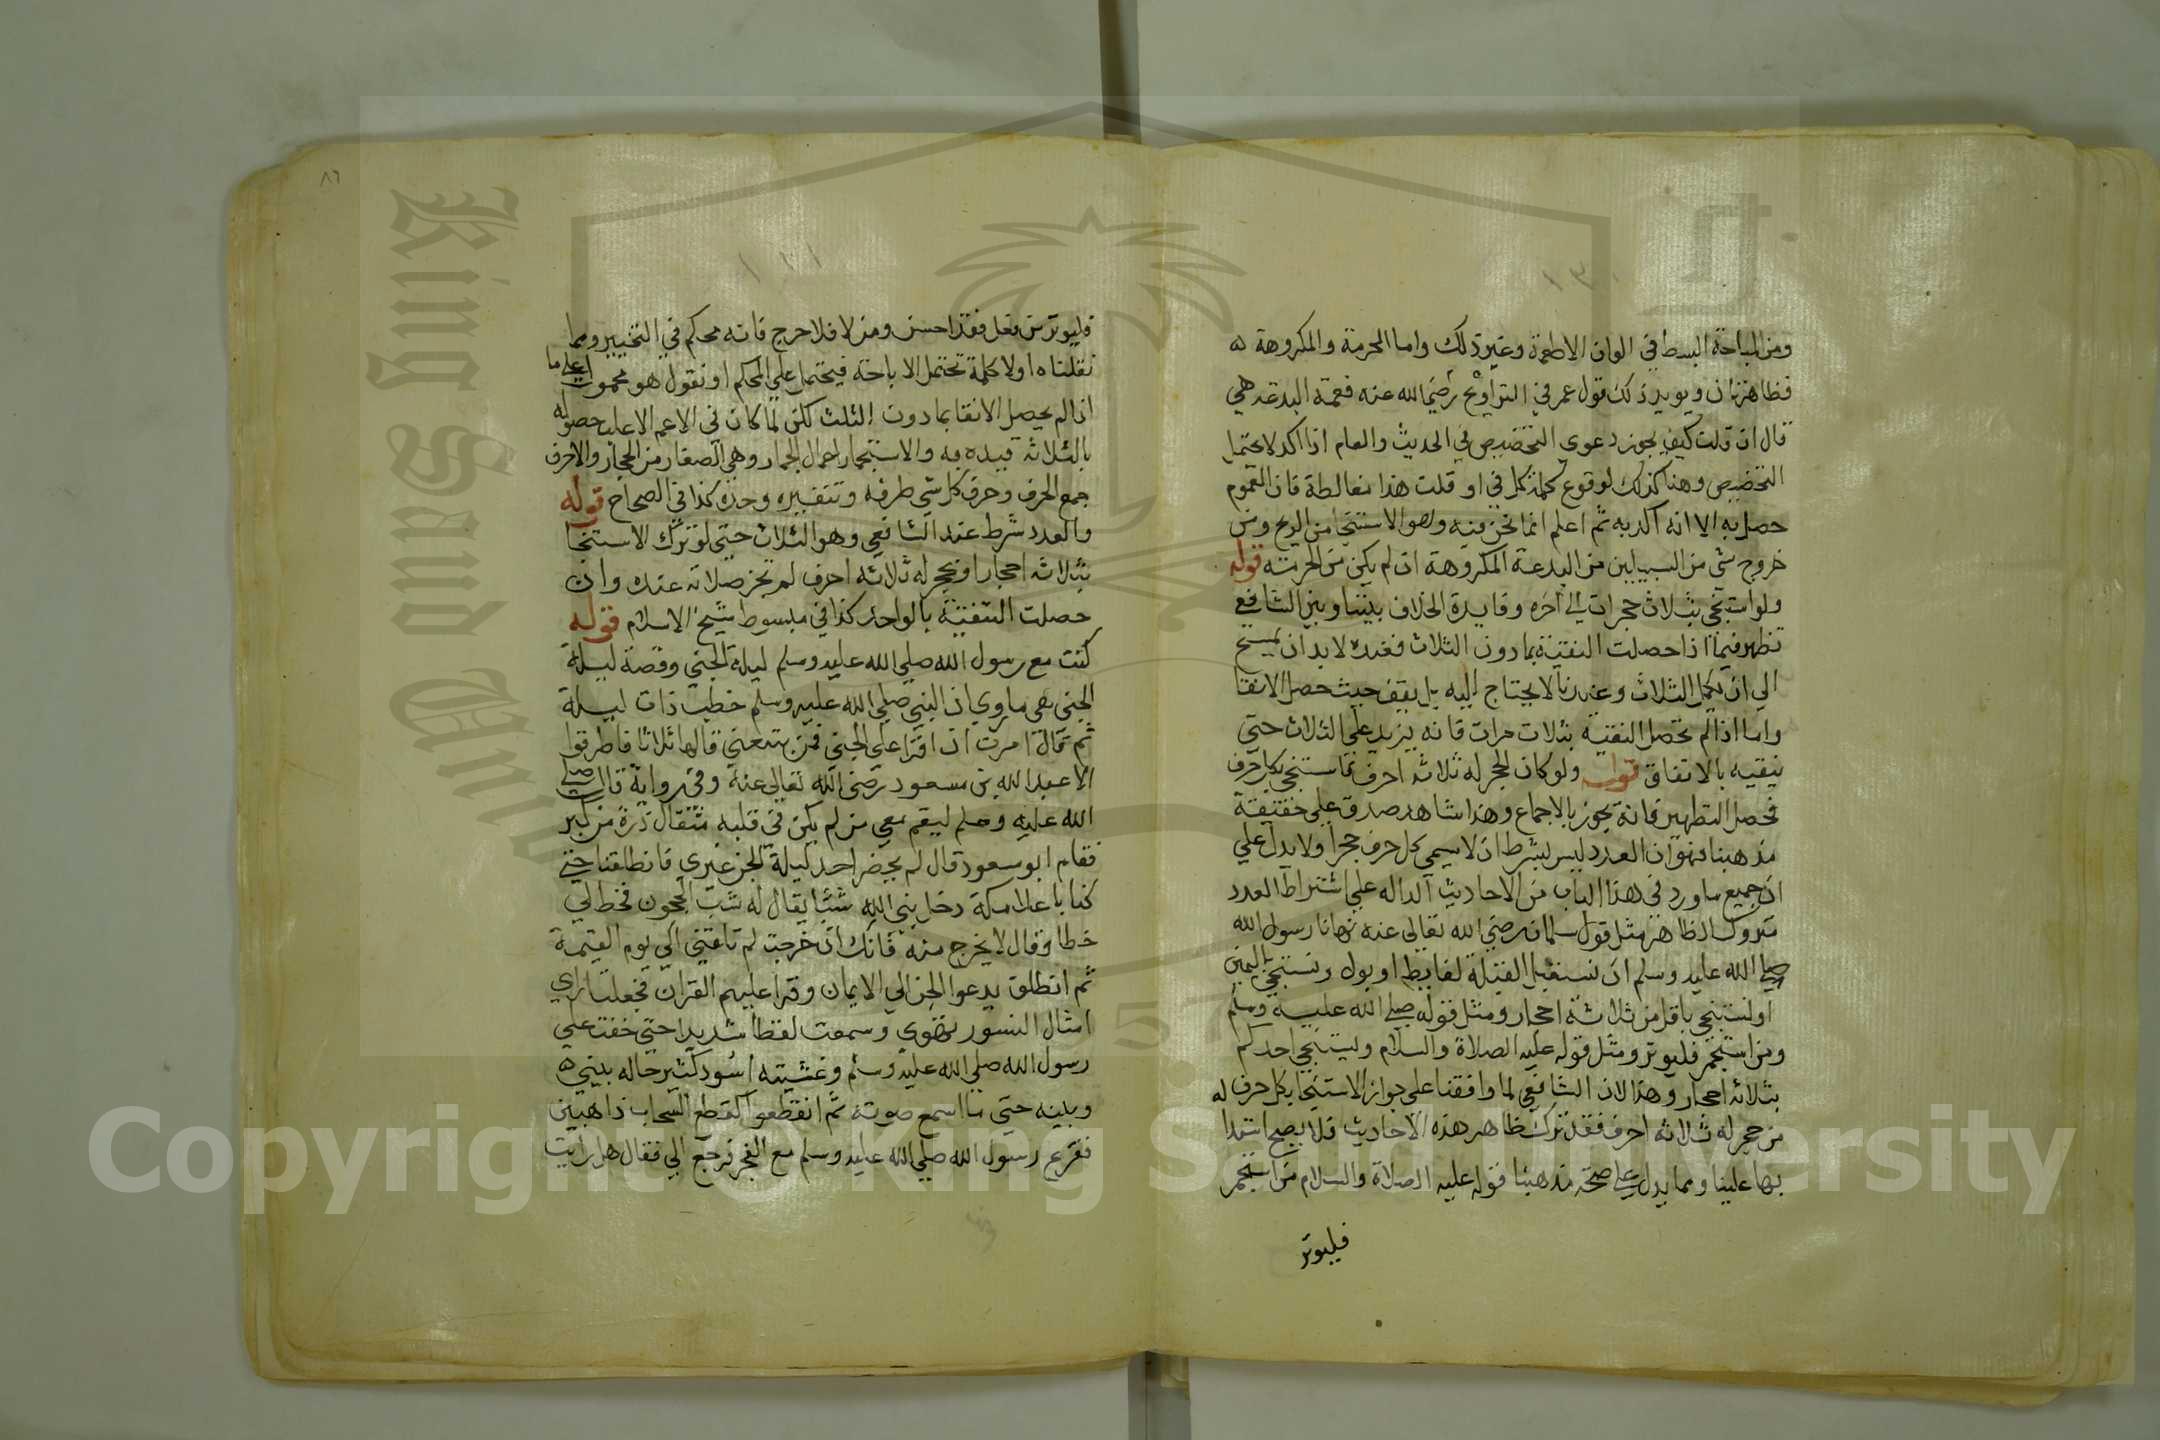 ومن المباحة البسط في الوان الاطعمة وغير ذلك واما المحرمة والمكروهة
فظاهرتان ويويد ذلك قول عمر في التراويح رضي الله عنه فعمة البدعة هي
قال ان قلت كيف يجوز دعوي التخصيص في الحديث والعام اذا اكد لا يحتمل
التخصيص وهنا كذلك لوقوع كلمة كل في او قلت هذا مغالطة فان العموم
حصل به الا انه اكد به ثم اعلم انما نحن فيه وهو الاستنجا من الريح ومن
خروج شي من السبيلين من البدعة المكروهة ان لم يكن من الحرمة قوله
ولو استنجي بثلاث حجرات الي آخره وفايدة الخلاف بيننا وبين الشافعي
تظهر فيما اذا حصلت النقية بما دون الثلاث فعنده لابد ان يمسح
الي ان يكمل الثلاث وعندنا لا يحتاج اليه بل يقف حيث حصل الانقا
واما اذا لم تحصل النقية بثلاث مرات فانه يزيد علي الثلاث حتي
ينقيه بالاتفاق قوله ولو كان لحجر له ثلاثة احرف فاستنجي بكل حرف
فحصل التطهير فانه يجوز بالاجماع وهذا شاهد صدق علي حقيقة
مذهبنا فهو ان العدد ليس بشرط اذ لا يسمي كل حرف حجرا ولا يدل علي
ان جميع ما ورد في هذا الباب من الاحاديث الداله علي اشتراط العدد
متروك الظاهر مثل قول سلمان رضي الله تعالى عنه نهانا رسول الله
صلي الله عليه وسلم ان نستقبل القبلة لغايط او بول ونستنجي باليمين
او نستنجي باقل من ثلاثة احجار ومثل قوله صلي الله عليه وسلم
ومن استجمر فليوتر ومثل قوله عليه الصلاة والسلام وليستنجي احدكم
بثلاثة احجار وهذا لان الشافعي لما وافقنا علي جواز الاستنجا بكل حرف له
من حجر له ثلاثة احرف فقد ترك ظاهر هذه الاحاديث فلا يصح
بها علينا ومما يدل علي صحة مذهبنا قوله عليه الصلاة والسلام من استجمر
فليوتر
٨٦
فليوتر من فعل فقد احسن ومن لا فلا حرج فانه محكم في التخيير ومما
نقلناه اولا كلمة تحتمل الاباحة فيحتمل علي المحكم او نقول هو محمول علي ما
اذا لم يحصل الانقا بما دون الثلث لكن لما كان في الاعم الاغلب حصوله
بالثلاثة قيده به والاستجمار اعمال الجمار وهي الصغار من الحجار والاحرف
جمع الحرف وحرف كل شي طرفه وحده كذا في الصحاح قوله
والعدد شرط عند الشافعي وهو الثلاث حتي لو ترك الاستنجا
بثلاثة احجار او بحجر له ثلاثة احرف لم تجز صلاته عنده وان
حصلت التنقية بالواحد كذا في مبسوط شيخ الاسلام قوله
كنت مع رسول الله صلي الله عليه وسلم ليلة الجني وقصة ليلة
الجني هي ما روي ان النبي صلي الله عليه وسلم خطب ذات ليلة
ثم قال امرت ان اقرا علي الجني فمن يتبعني قالها ثلاثا فاطرقوا
الا عبد الله بن مسعود رضي الله تعالي عنه وفي رواية قال صلي
الله عليه وسلم ليقم معي من لم يكن في قلبه مثقال ذرة من كبر
فقام ابو سعود قال لم يحضر احد ليلة الجن غيري فانطلقنا حتي
كنا باعلا مكة دخل بني الله شعبا يقال له شب الحجون فخط لي
خطا وقال لا يخرج منه فانك ان خرجت لم تلقني الي يوم القيمة
ثم انطلق يدعوا الجن الي الايمان وقرا عليهم القران فجعلت اري
امثال النسور تهوي وسمعت لغطا شديدا حتي خفت علي
رسول الله صلي الله عليه وسلم وغشيته اسود كثير حاله بيني
وبينه حتي ما اسمع صوته ثم انقطعوا كقطع السحاب ذاهبين
ففرغ رسول الله صلي الله عليه وسلم مع الفجر فرجع الي فقال هل رايت
King Saud University
Copyright © King Saud University